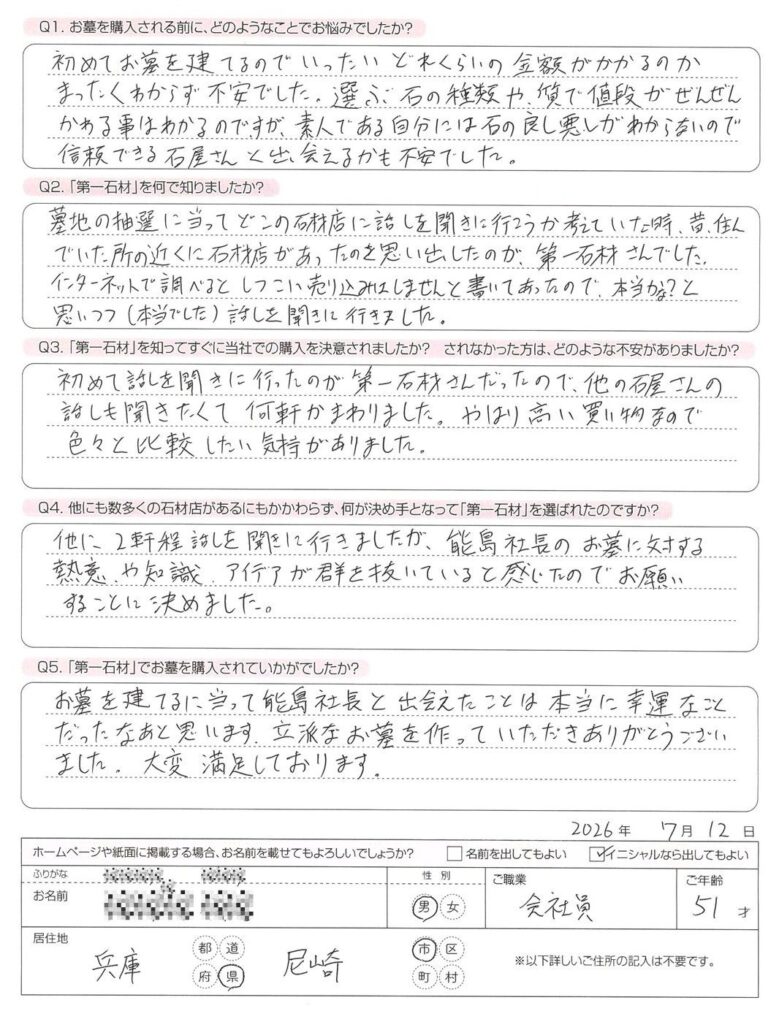 Q1. お墓を購入される前に、どのようなことでお悩みでしたか?
初めてお墓を建てるのでいったいどれくらいの金額がかかるのか
まったくわからず不安でした。選ぶ石の種類や、質で値段がぜんぜん
かわる事はわかるのですが、素人である自分には石の良し悪しがわからないので
信頼できる石屋さんと出会えるかも不安でした。
Q2.「第一石材」を何で知りましたか?
墓地の抽選に当ってどこの石材店に話しを聞きに行こうか考えていた時、昔、住ん
でいた所の近くに石材店があったのを思い出したのが、第一石材さんでした。
インターネットで調べるとしつこい売り込みはしませんと書いてあったので、本当かな?と
思いつつ(本当でした)話しを聞きに行きました。
Q3.「第一石材」を知ってすぐに当社での購入を決意されましたか? されなかった方は、どのような不安がありましたか?
初めて話しを聞きに行ったのが第一石材さんだったので、他の石屋さんの
話しも聞きたくて何軒かまわりました。やはり高い買い物なので
色々と比較したい気持がありました。
Q4. 他にも数多くの石材店があるにもかかわらず、何が決め手となって「第一石材」を選ばれたのですか?
他に、2軒程話しを聞きに行きましたが、能島社長のお墓に対する
熱意や知識、アイデアが群を抜いていると感じたのでお願い
することに決めました。
Q5.「第一石材」でお墓を購入されていかがでしたか?
お墓を建てるに当って能島社長と出会えたことは本当に幸運なこと
だったなあと思います。立派なお墓を作っていただきありがとうござい
ました。大変満足しております。
2026年 7月 12日
ホームページや紙面に掲載する場合、お名前を載せてもよろしいでしょうか? □名前を出してもよい ☑イニシャルなら出してもよい
ふりがな 性別 ご職業 ご年齢
お名前 男 女 会社員 51才
居住地 兵庫 都 道 府 県 尼崎 市 区 町 村 ※以下詳しいご住所の記入は不要です。